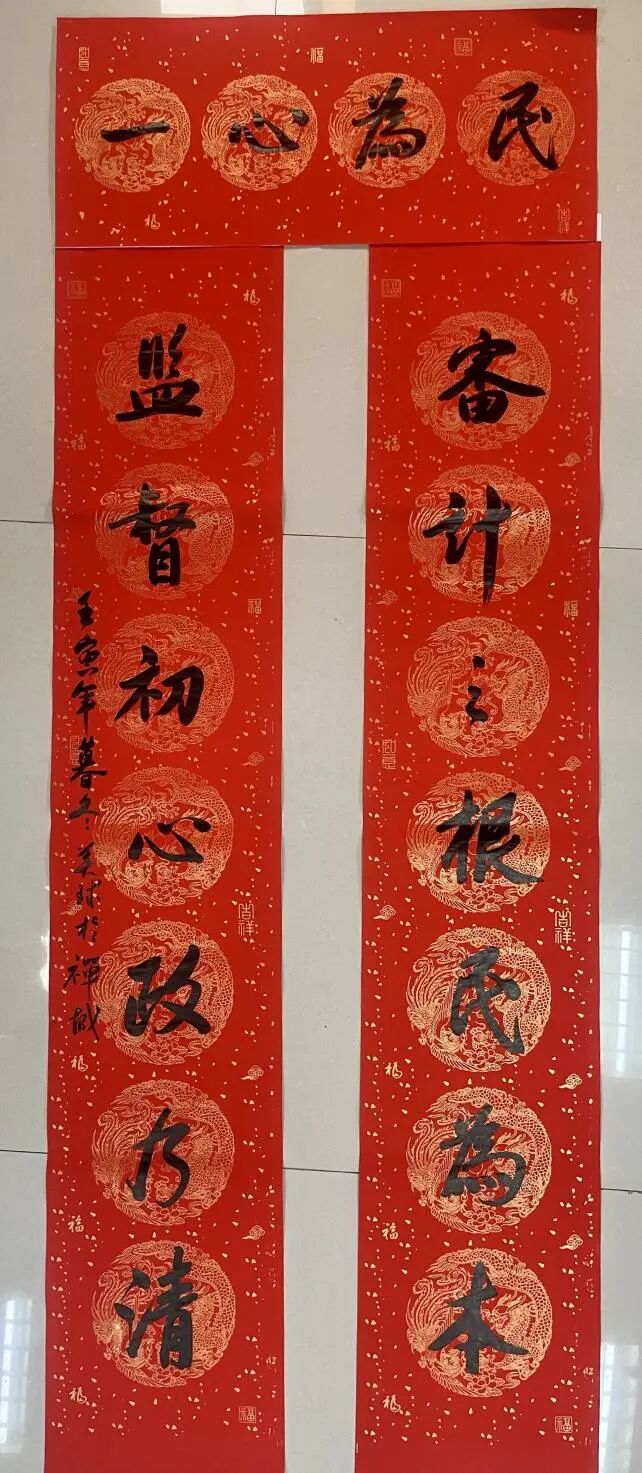 一心為民
審計之根民為本
監督初心政乃清
壬寅年暮冬美球於禪城